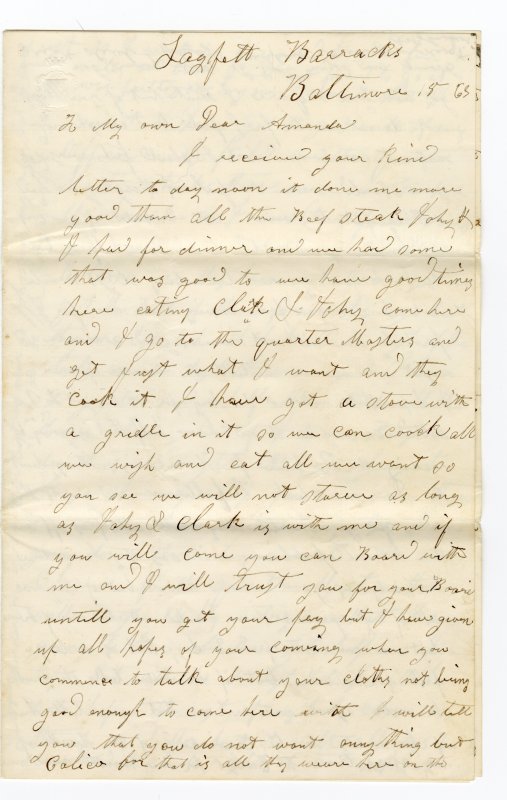 Lagfett Barracks
Baltimore 15 63
To My own Dear Amanda
I received your kind
letter to day noon it done me more
good than all the Beef steak &
I had for dinner and we had some
that was good to we have good times
here eating Clark & come here
and I go to the quarter Masters and
get just what I want and they
Cook it I have got a stove with
a gridle in it so we can coock all
we wish and eat all we want so
you see we will not starve as long
as & Clark is with me and if
you will come you can Board with
me and I will trust you for your Board
untill you get your pay but I have given
up all hopes of your comeing when you
commence to talk about your cloths not being
good enough to come here with I will tell
you that you do not want annything but
Calico for that is all they weare here on the